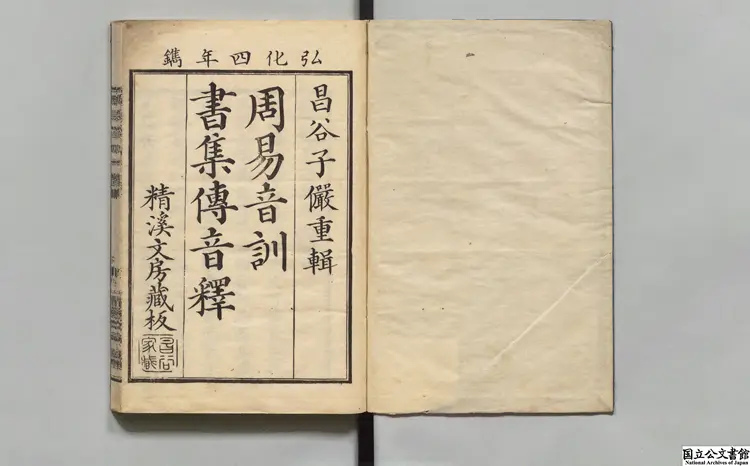 弘化四年鐫
昌谷子儼重輯
周易音訓
書集傳音釋
精溪文房藏板
昌谷家藏
国立公文書館
National Archives of Japan